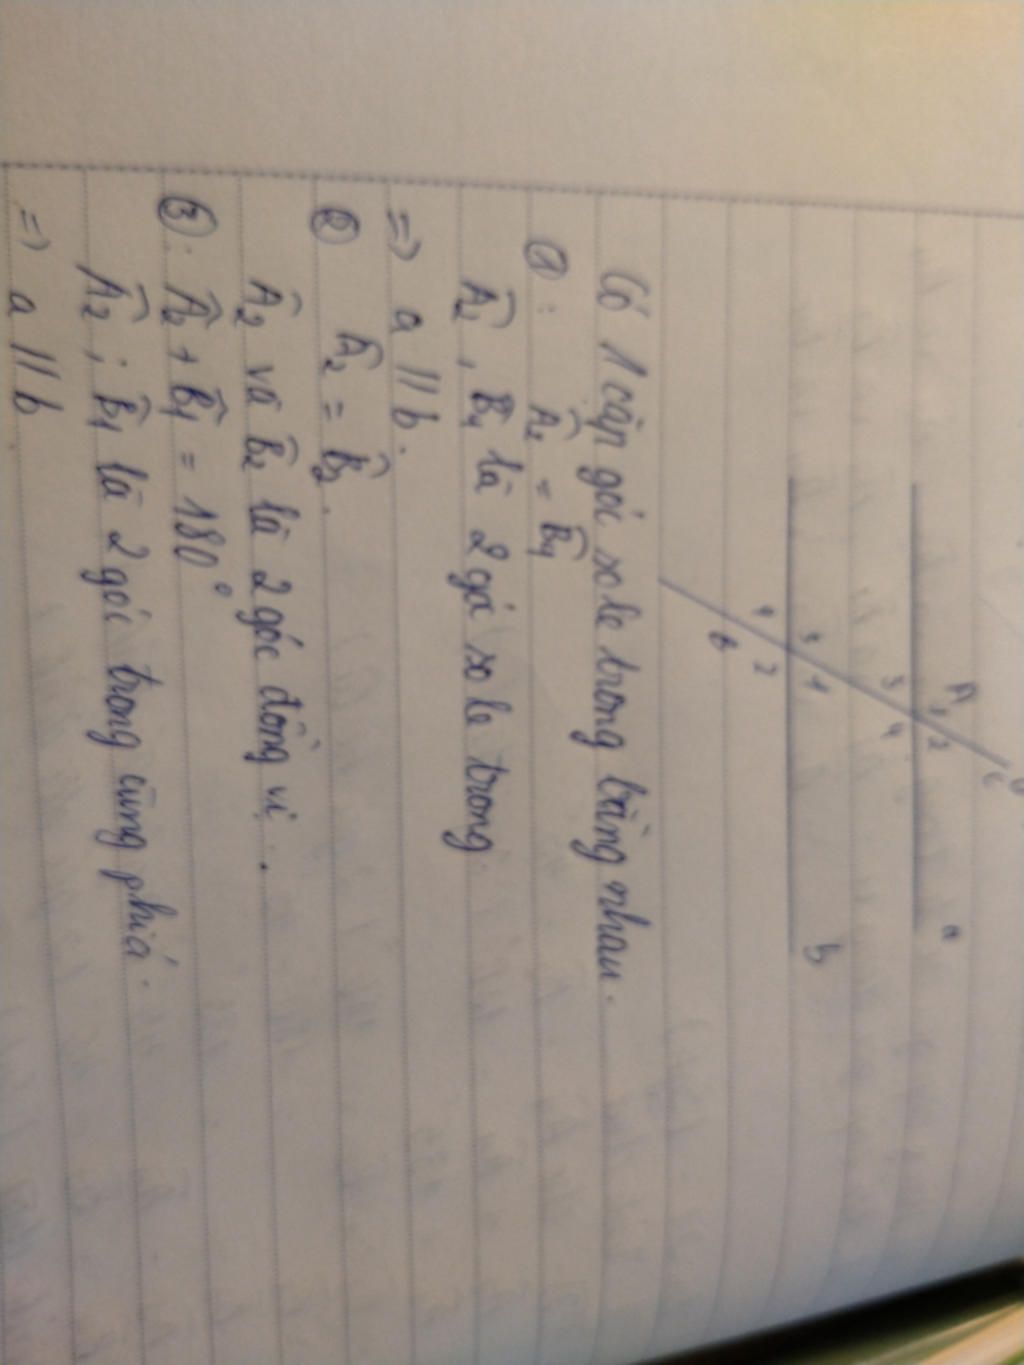 a
A 1 2
3 4
b
3 1
4 2
B
Có 1 cặp góc so le trong bằng nhau.
①: Â₂ = B̂₄
Â₂, B̂₄ là 2 góc so le trong
=> a // b.
② Â₂ = B̂₂.
Â₂ và B̂₂ là 2 góc đồng vị.
③: Â₂ + B̂₁ = 180°
Â₂; B̂₁ là 2 góc trong cùng phiá.
=> a // b